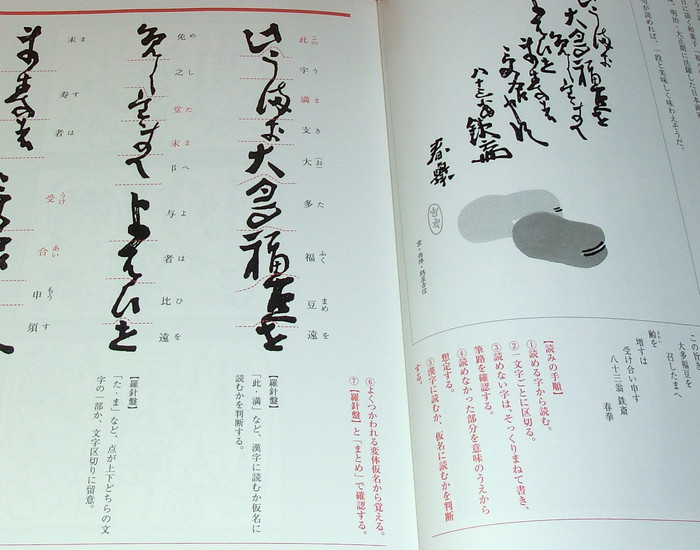 明治・大正期に活躍した日本画家
が読めれば、一段と美味しく味わえそうだ。
八十三翁鉄斎
京・西陣・鶴屋吉信
大多福豆を
召したまへ
齢を
よわい
増すは
受け合い申す
八十三翁 鉄斎
春拳
【読みの手順】
①読める字から読む。
②一文字ごとに区切る。
③読めない字は、そっくりまねて書き、
筆路を確認する。
④読めなかった部分を意味のうえから
想定する。
⑤漢字に読むか、仮名に読むかを判断
する。
⑥よくつかわれる変体仮名から覚える。
⑦【羅針盤】と「まとめ」で確認する。
このうまき(お)たふくまめを
此宇満支大多福豆遠
【羅針盤】
「此・満」など、漢字に読むか仮名に
読むかを判断する。
めしたまへよはひを
免之堂末阝与者比遠
【羅針盤】
「た・ま」など、点が上下どちらの文
字の一部か、文字区切りに留意。
ますは うけあいもうす
末寿者 受合申須